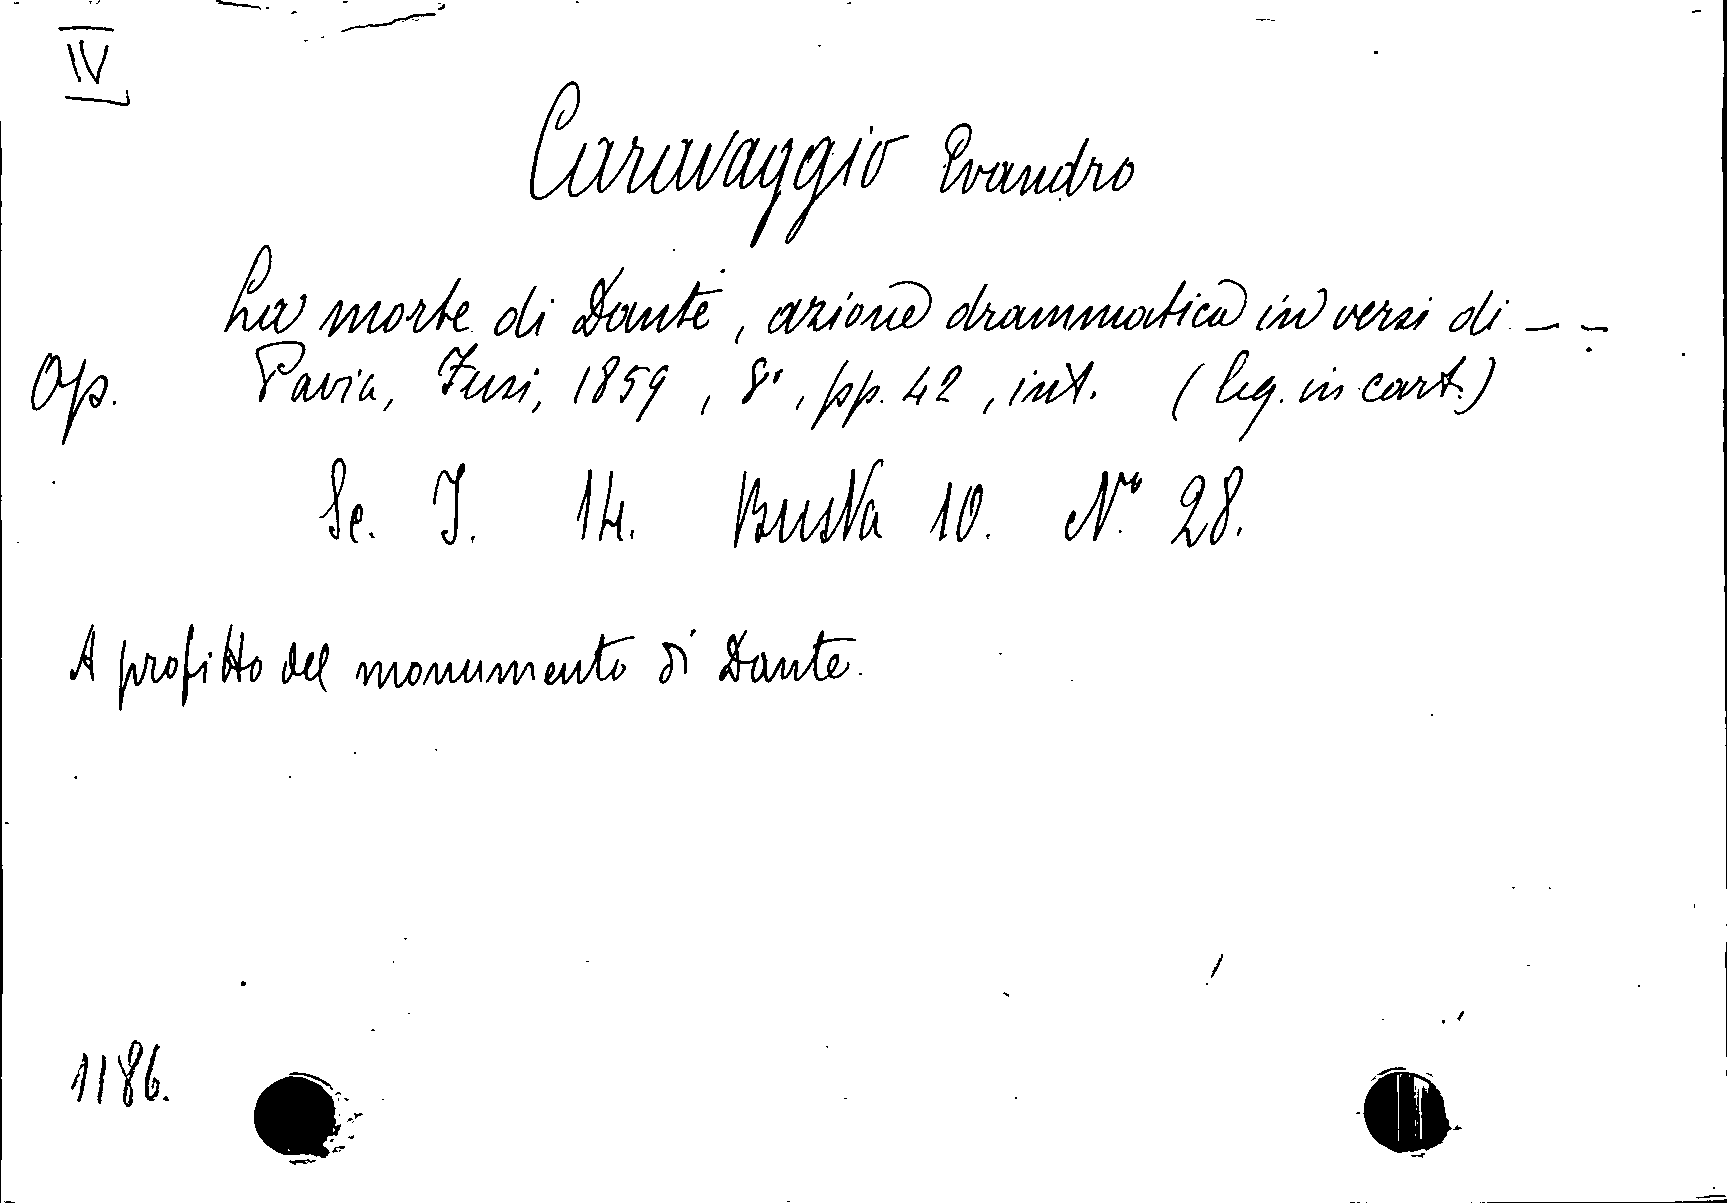 IV
Caravaggio Evandro
La morte di Dante, azione drammatica in versi di - - -
Op. Pavia, Fusi, 1859, 8°, pp. 42, int. (leg. in cart.)
Se. I. 14. Busta 10. N° 28.
A profitto del monumento di Dante.
1186.